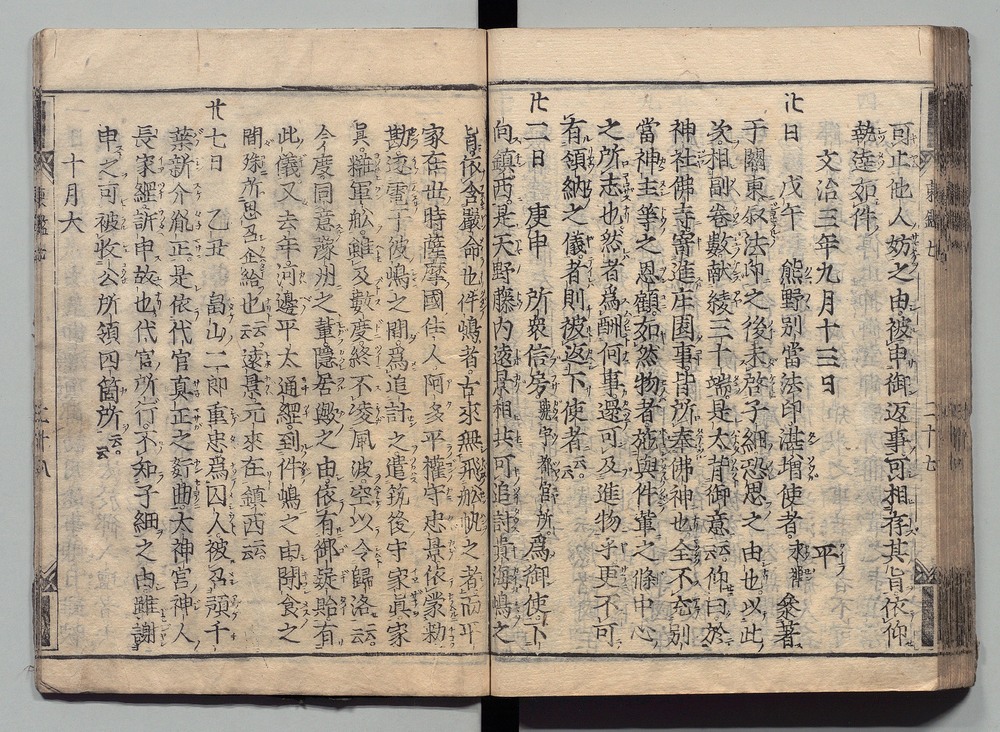 可止他人妨之由被申御返事可相存其旨依仰
執達如件
文治三年九月十三日 平
廿日 戊午 熊野別當法印湛増使者 參著
于關東叙法印之後未啓子細恐思之由也以此
次相副巻數献綾三十端是太背御意云云仰曰於
神社佛寺寄進庄園事皆所奉佛神也全不充別
當神主等之恩顧如然物者施與件輩之條中心
之所志也然者爲酬何事還可及進物乎更不可
有領納之儀者則被返下使者云云
廿二日 庚申 所衆信房號宇都宮所爲御使下
向鎭西是天野藤内遠景相共可追討貴海嶋之
旨依含嚴命也件嶋者古來無飛舩帆之者而平
家在世時薩摩國住人阿多平權守忠景依蒙勅
勘逐電于彼嶋之間爲追討之遣筑後守家眞家
眞粧軍舩雖及數度終不凌風波空以令歸洛云云
今度同意豫州之輩隱居歟之由依有御疑貽有
此儀又去年河邊平太通經到件嶋之由聞食之
間殊所思召企給也云云遠景元來在鎭西云云
廿七日 乙丑 畠山二郎重忠爲囚人被召預千
葉新介胤正是依代官真正之奸曲太神宮神人
長家綱訴申故也代官所行不知子細之由雖謝
申之可被收公所領四箇所云云
十月大
東鑑七
二十七
二十八